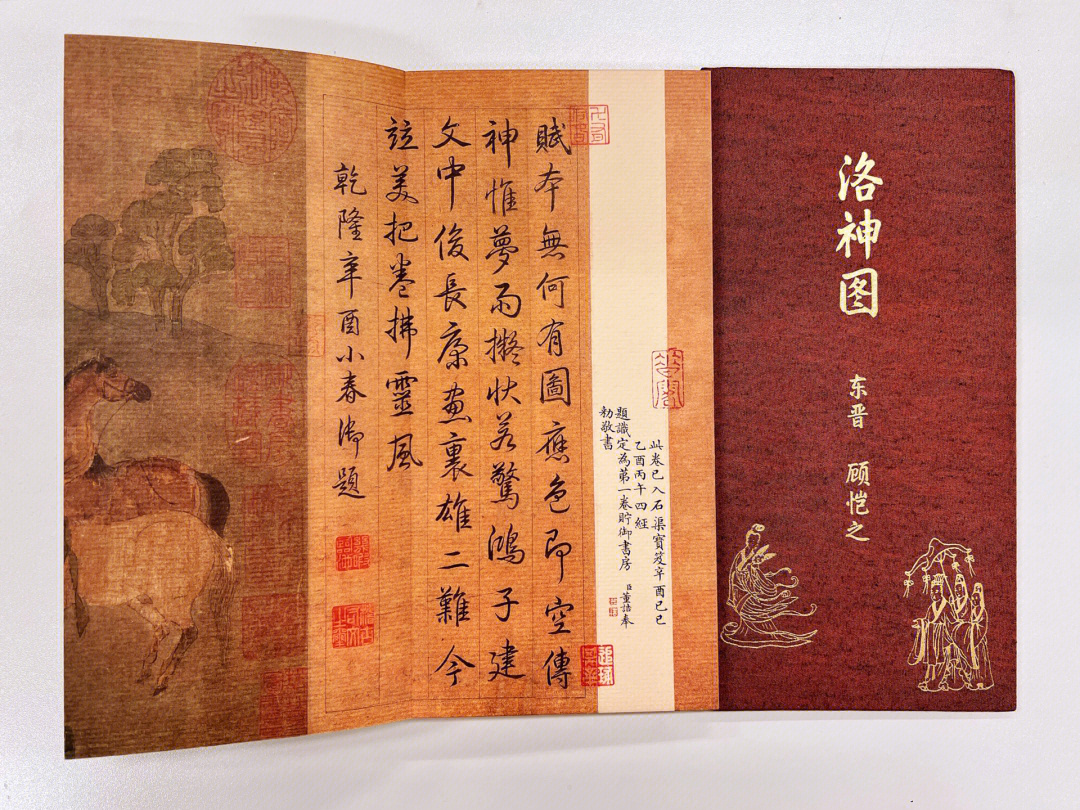 洛神图
东晋 顾恺之
此卷已入石渠寶笈辛酉已巳
乙酉丙午四經
題識定為第一卷貯御書房 臣董誥奉
勅敬書
賦本無何有圖應色即空傳
神惟夢雨擬狀若驚鴻子建
文中俊長康畫裏雄二難今
竝美把卷拂靈風
乾隆辛酉小春御題